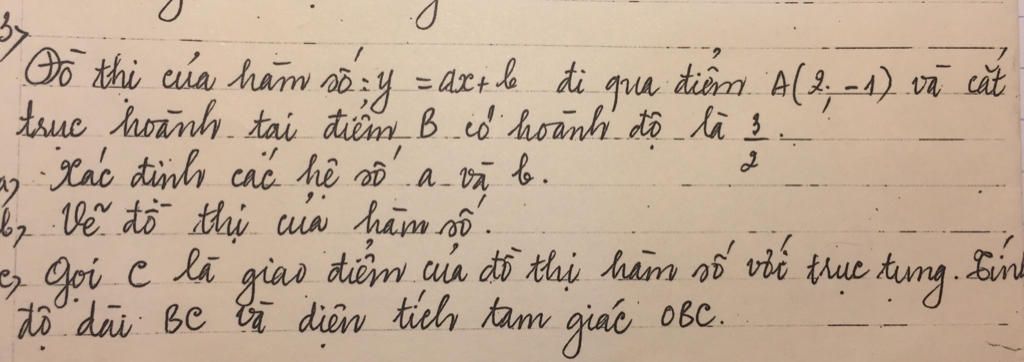 3,
Đồ thị của hàm số: y = ax + b đi qua điểm A(2; -1) và cắt
trục hoành tại điểm B có hoành độ là 3/2.
a, Xác định các hệ số a và b.
b, Vẽ đồ thị của hàm số.
c, Gọi C là giao điểm của đồ thị hàm số với trục tung. Tính
độ dài BC và diện tích tam giác OBC.